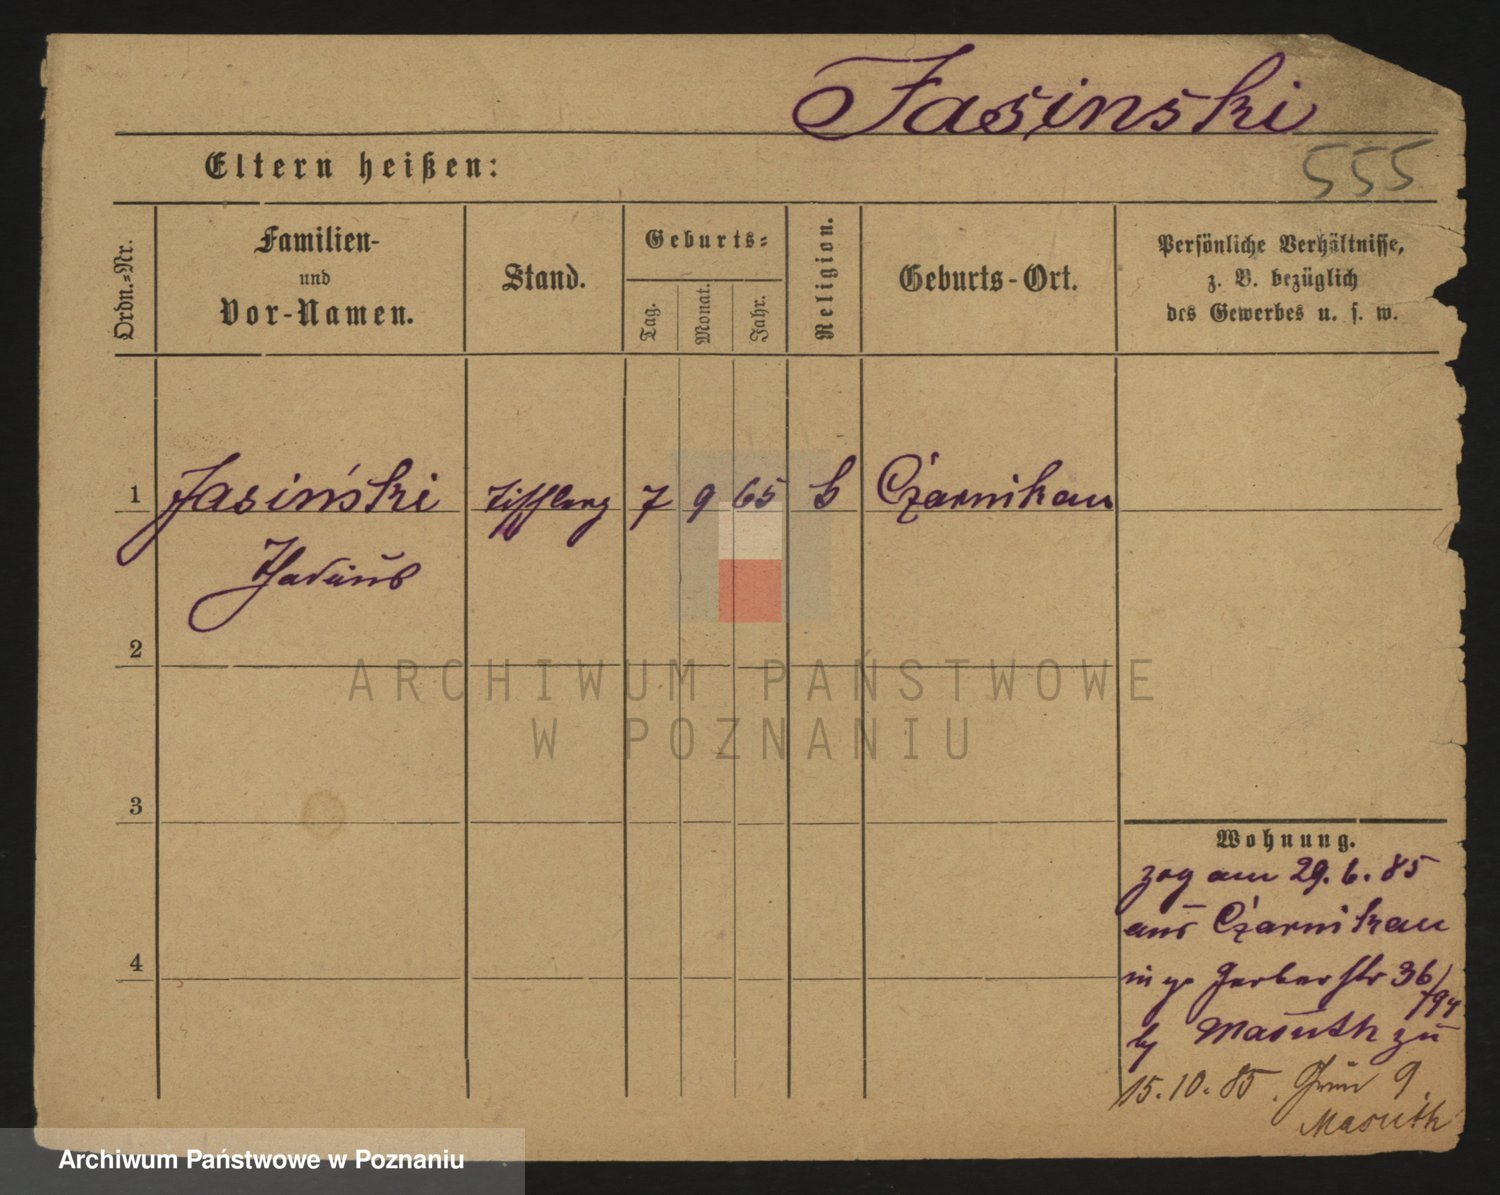 Jasinski
555
Eltern heißen:
Ordn.-Nr.
Familien-
und
Vor-Namen.
Stand.
Geburts-
Tag.
Monat.
Jahr.
Religion.
Geburts-Ort.
Persönliche Verhältnisse,
z. B. bezüglich
des Gewerbes u. s. w.
1 Jasiński 7 9 65 Czarnikau
2
3
4
Wohnung.
zog am 29. 6. 85
aus Czarnikau
Gerberstr 36/
Masuth zu
15. 10. 85. Grün 9
Masuth
ARCHIWUM PAŃSTWOWE
W POZNANIU
Archiwum Państwowe w Poznaniu